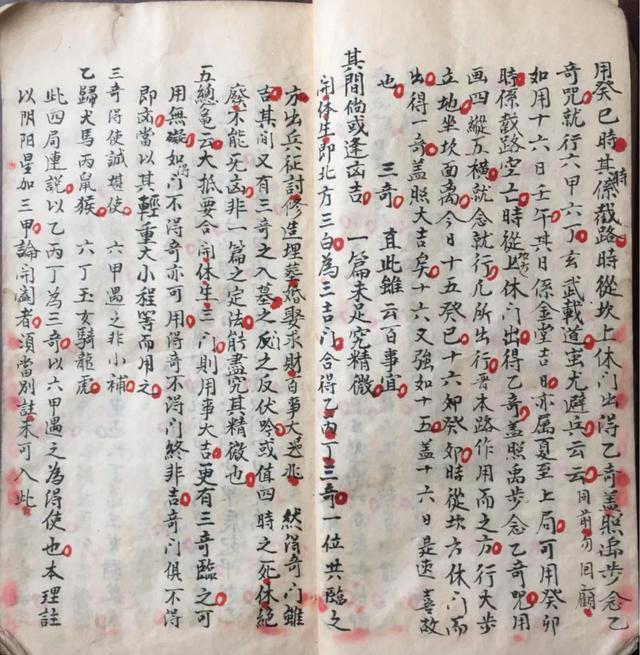 用癸巳時其時係截路時從坎上休門出得乙奇蓋照禹步念乙
奇咒就行六甲六丁玄武載道蚩尤避兵云云同前勿回顧
如用十六日壬午其日係金堂吉日亦属夏至上局可用癸卯
時係截路空亡時從坎上休門出得乙奇蓋照禹步念乙奇咒用
画四縱五横就念就行凡所出行普本路作用而之方行大步
立地坐坎面离今日十五癸巳十六卯癸卯時從坎方休門而
出得一奇蓋照大吉矣十六又強如十五蓋十六日是速喜故
也 三奇 直此雖云百事宜
其間倘或逢凶吉 一篇未足究精微
開休生即北方三白為三吉門合得乙丙丁三奇一位共臨之
方出兵征討修造埋葬婚娶求財百事大逃兆 然得奇門雖
吉其間又有三奇之入墓之反之反伏吟或值四時之死休絕
廢不能无凶非一篇之定法能盡究其精微也
五總龜云大抵要合開休生三門則用事大吉更有三奇臨之可
用無礙如門不得奇亦可用得奇不得門終非吉奇門俱不得
即凶當以其輕重大小程等而用之
三奇得使誠堪使 六甲遇之非小補
乙歸犬馬丙鼠猴 六丁玉女騎龍虎
此四局連説以乙丙丁為三奇以六甲遇之為得使也本理註
以阴阳星加三甲論開闔者須當別註未可入此